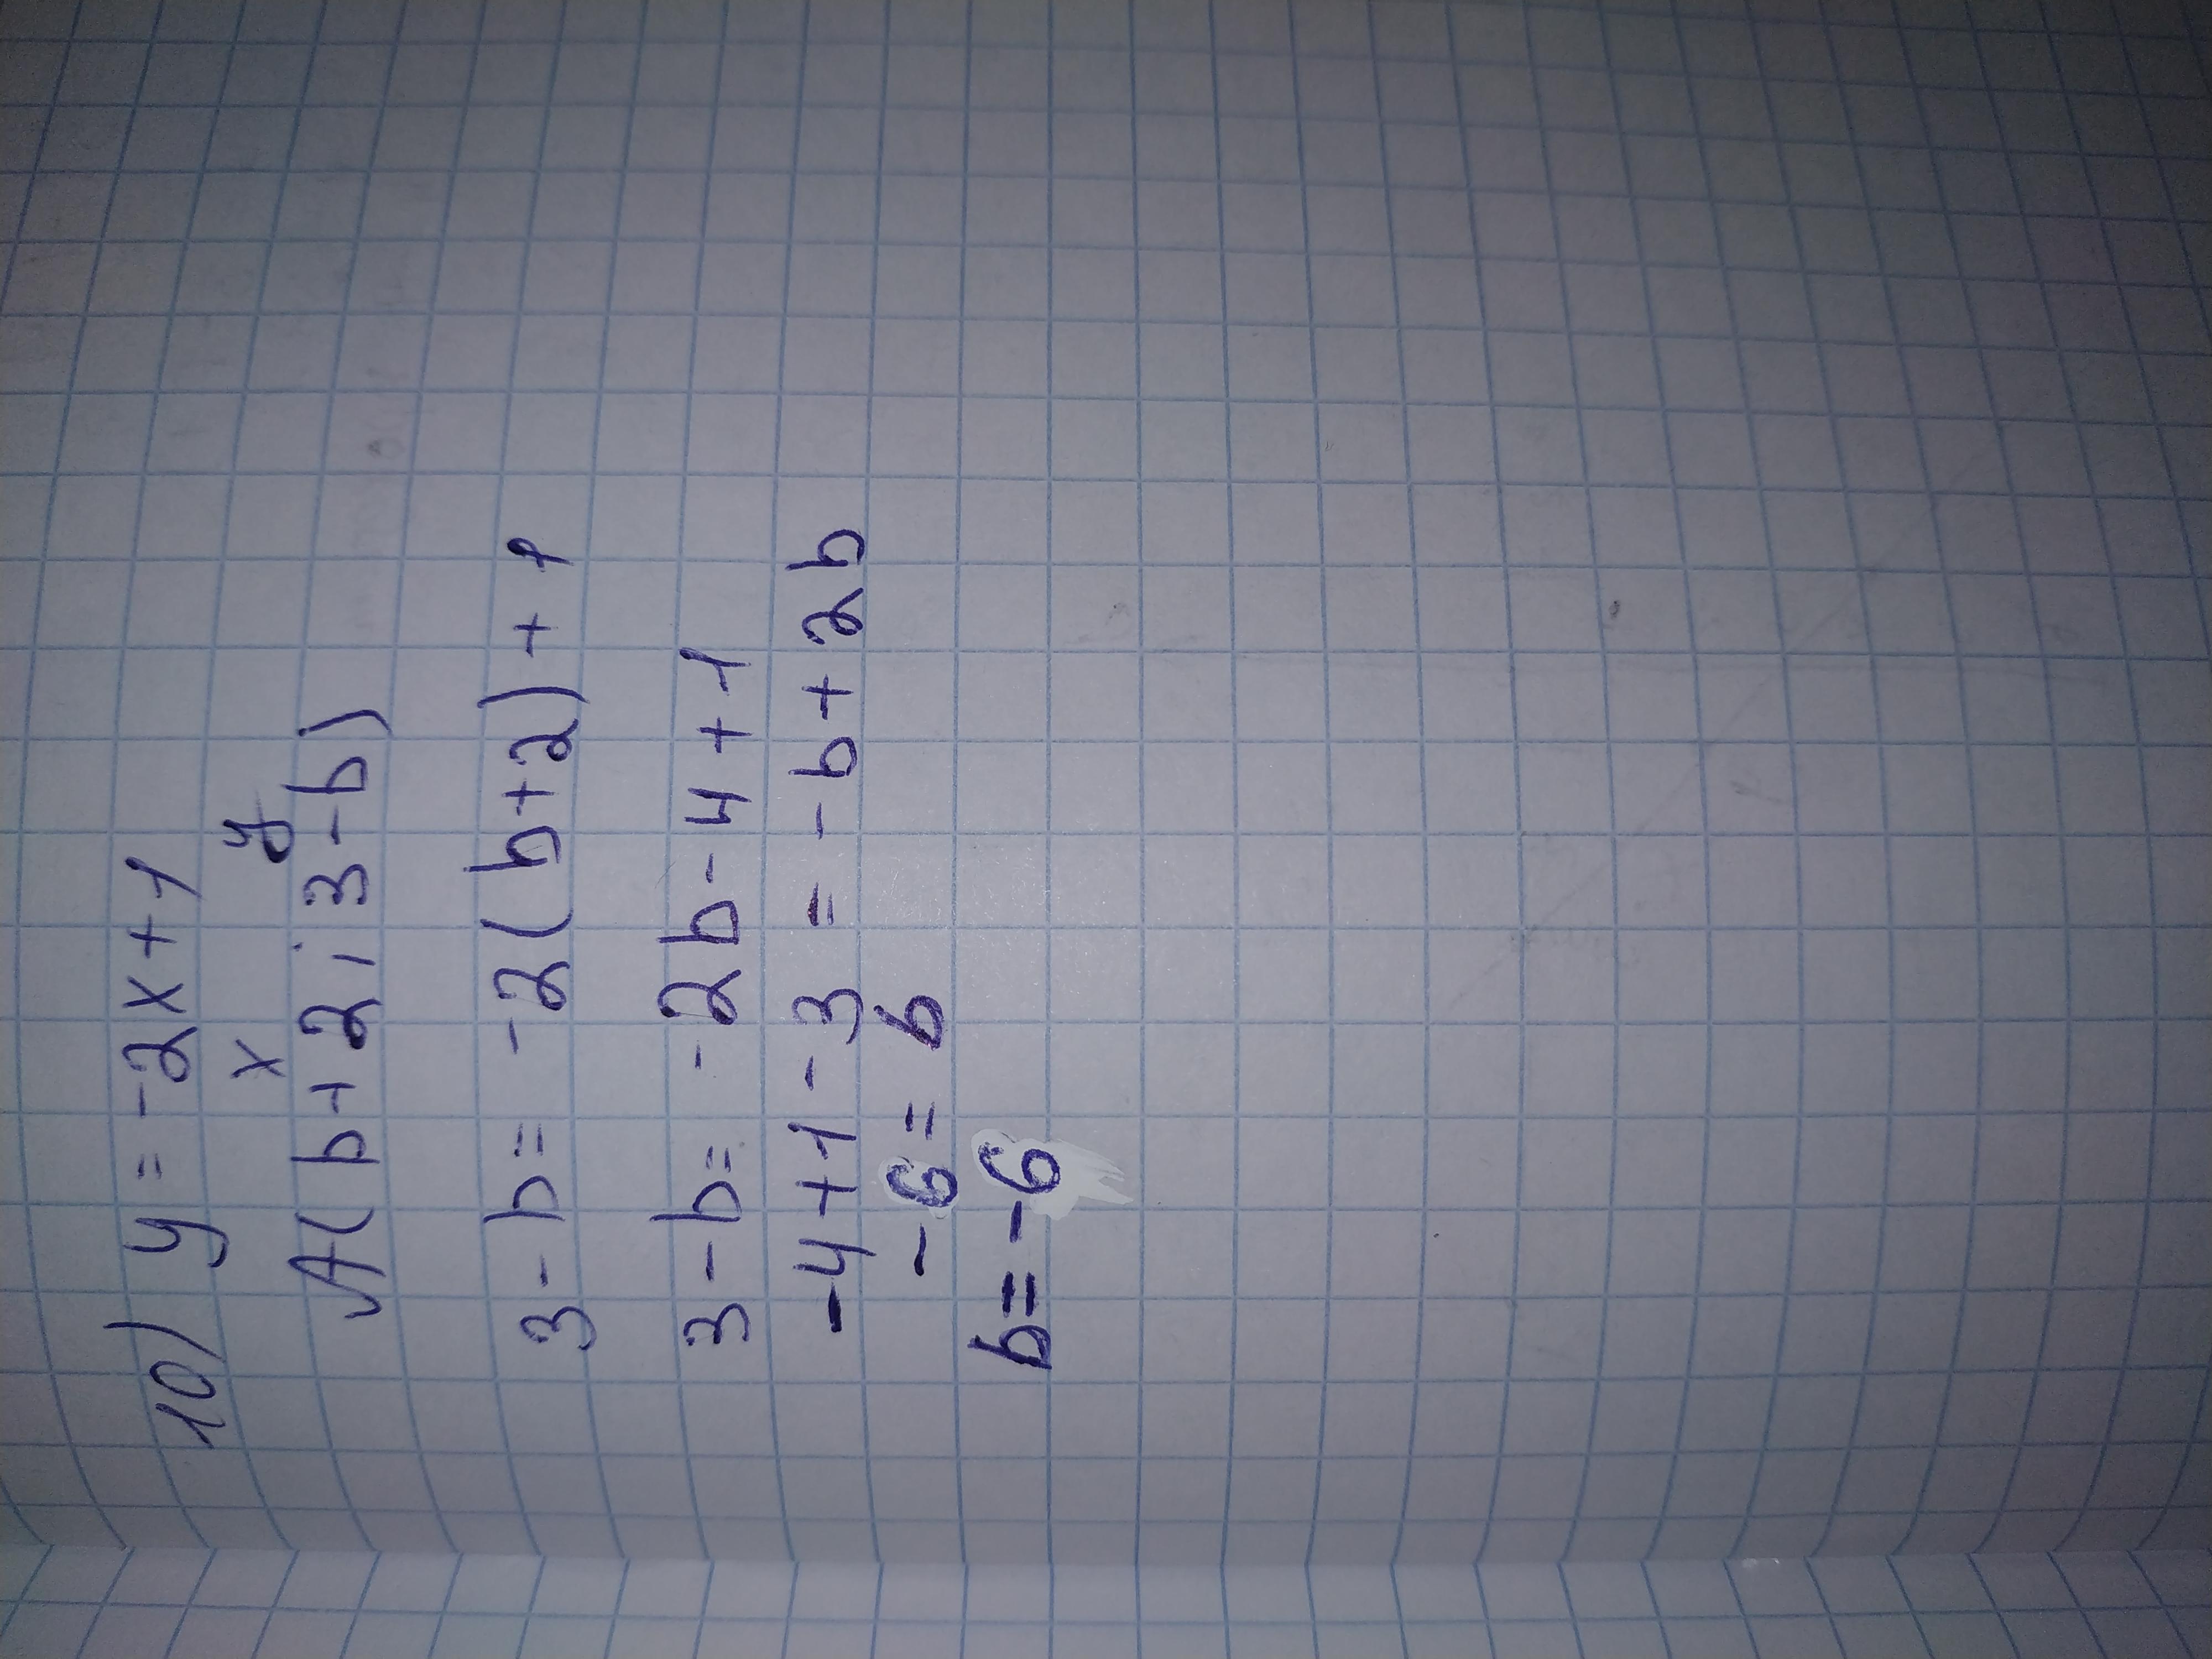 10) y = -2x+1
x y
A(b+2; 3-b)
3-b= -2(b+2)+1
3-b= -2b-4+1
-4+1-3 = -b+2b
-6= b
b=-6